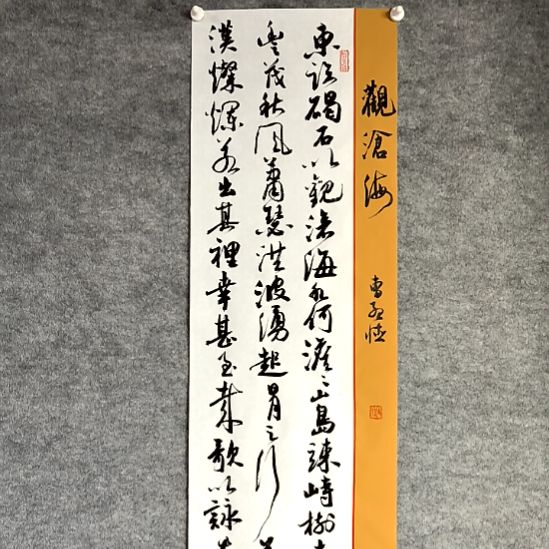 觀滄海
曹孟德
東臨碣石以觀滄海水何澹〻山島竦峙樹
豐茂秋風蕭瑟洪波湧起日月之行
漢燦爛若出其裡幸甚至哉歌以詠